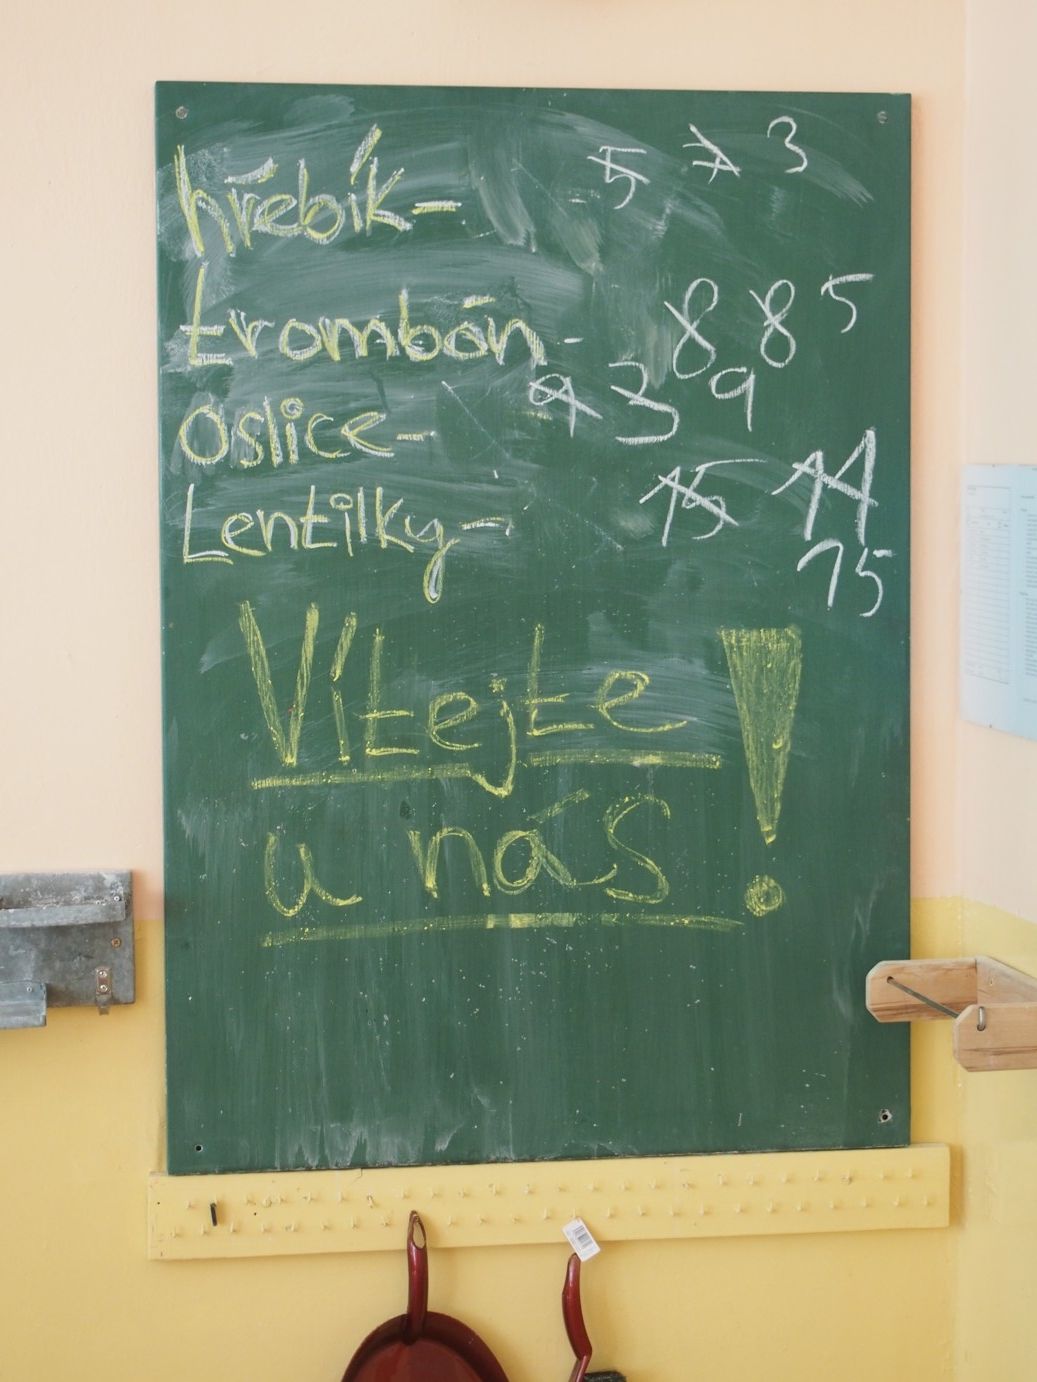 hřebík- 5 7 3
trombón- 8 8 5
Oslice- 9 3 9
Lentilky- 15 14
15
Vítejte
u nás!